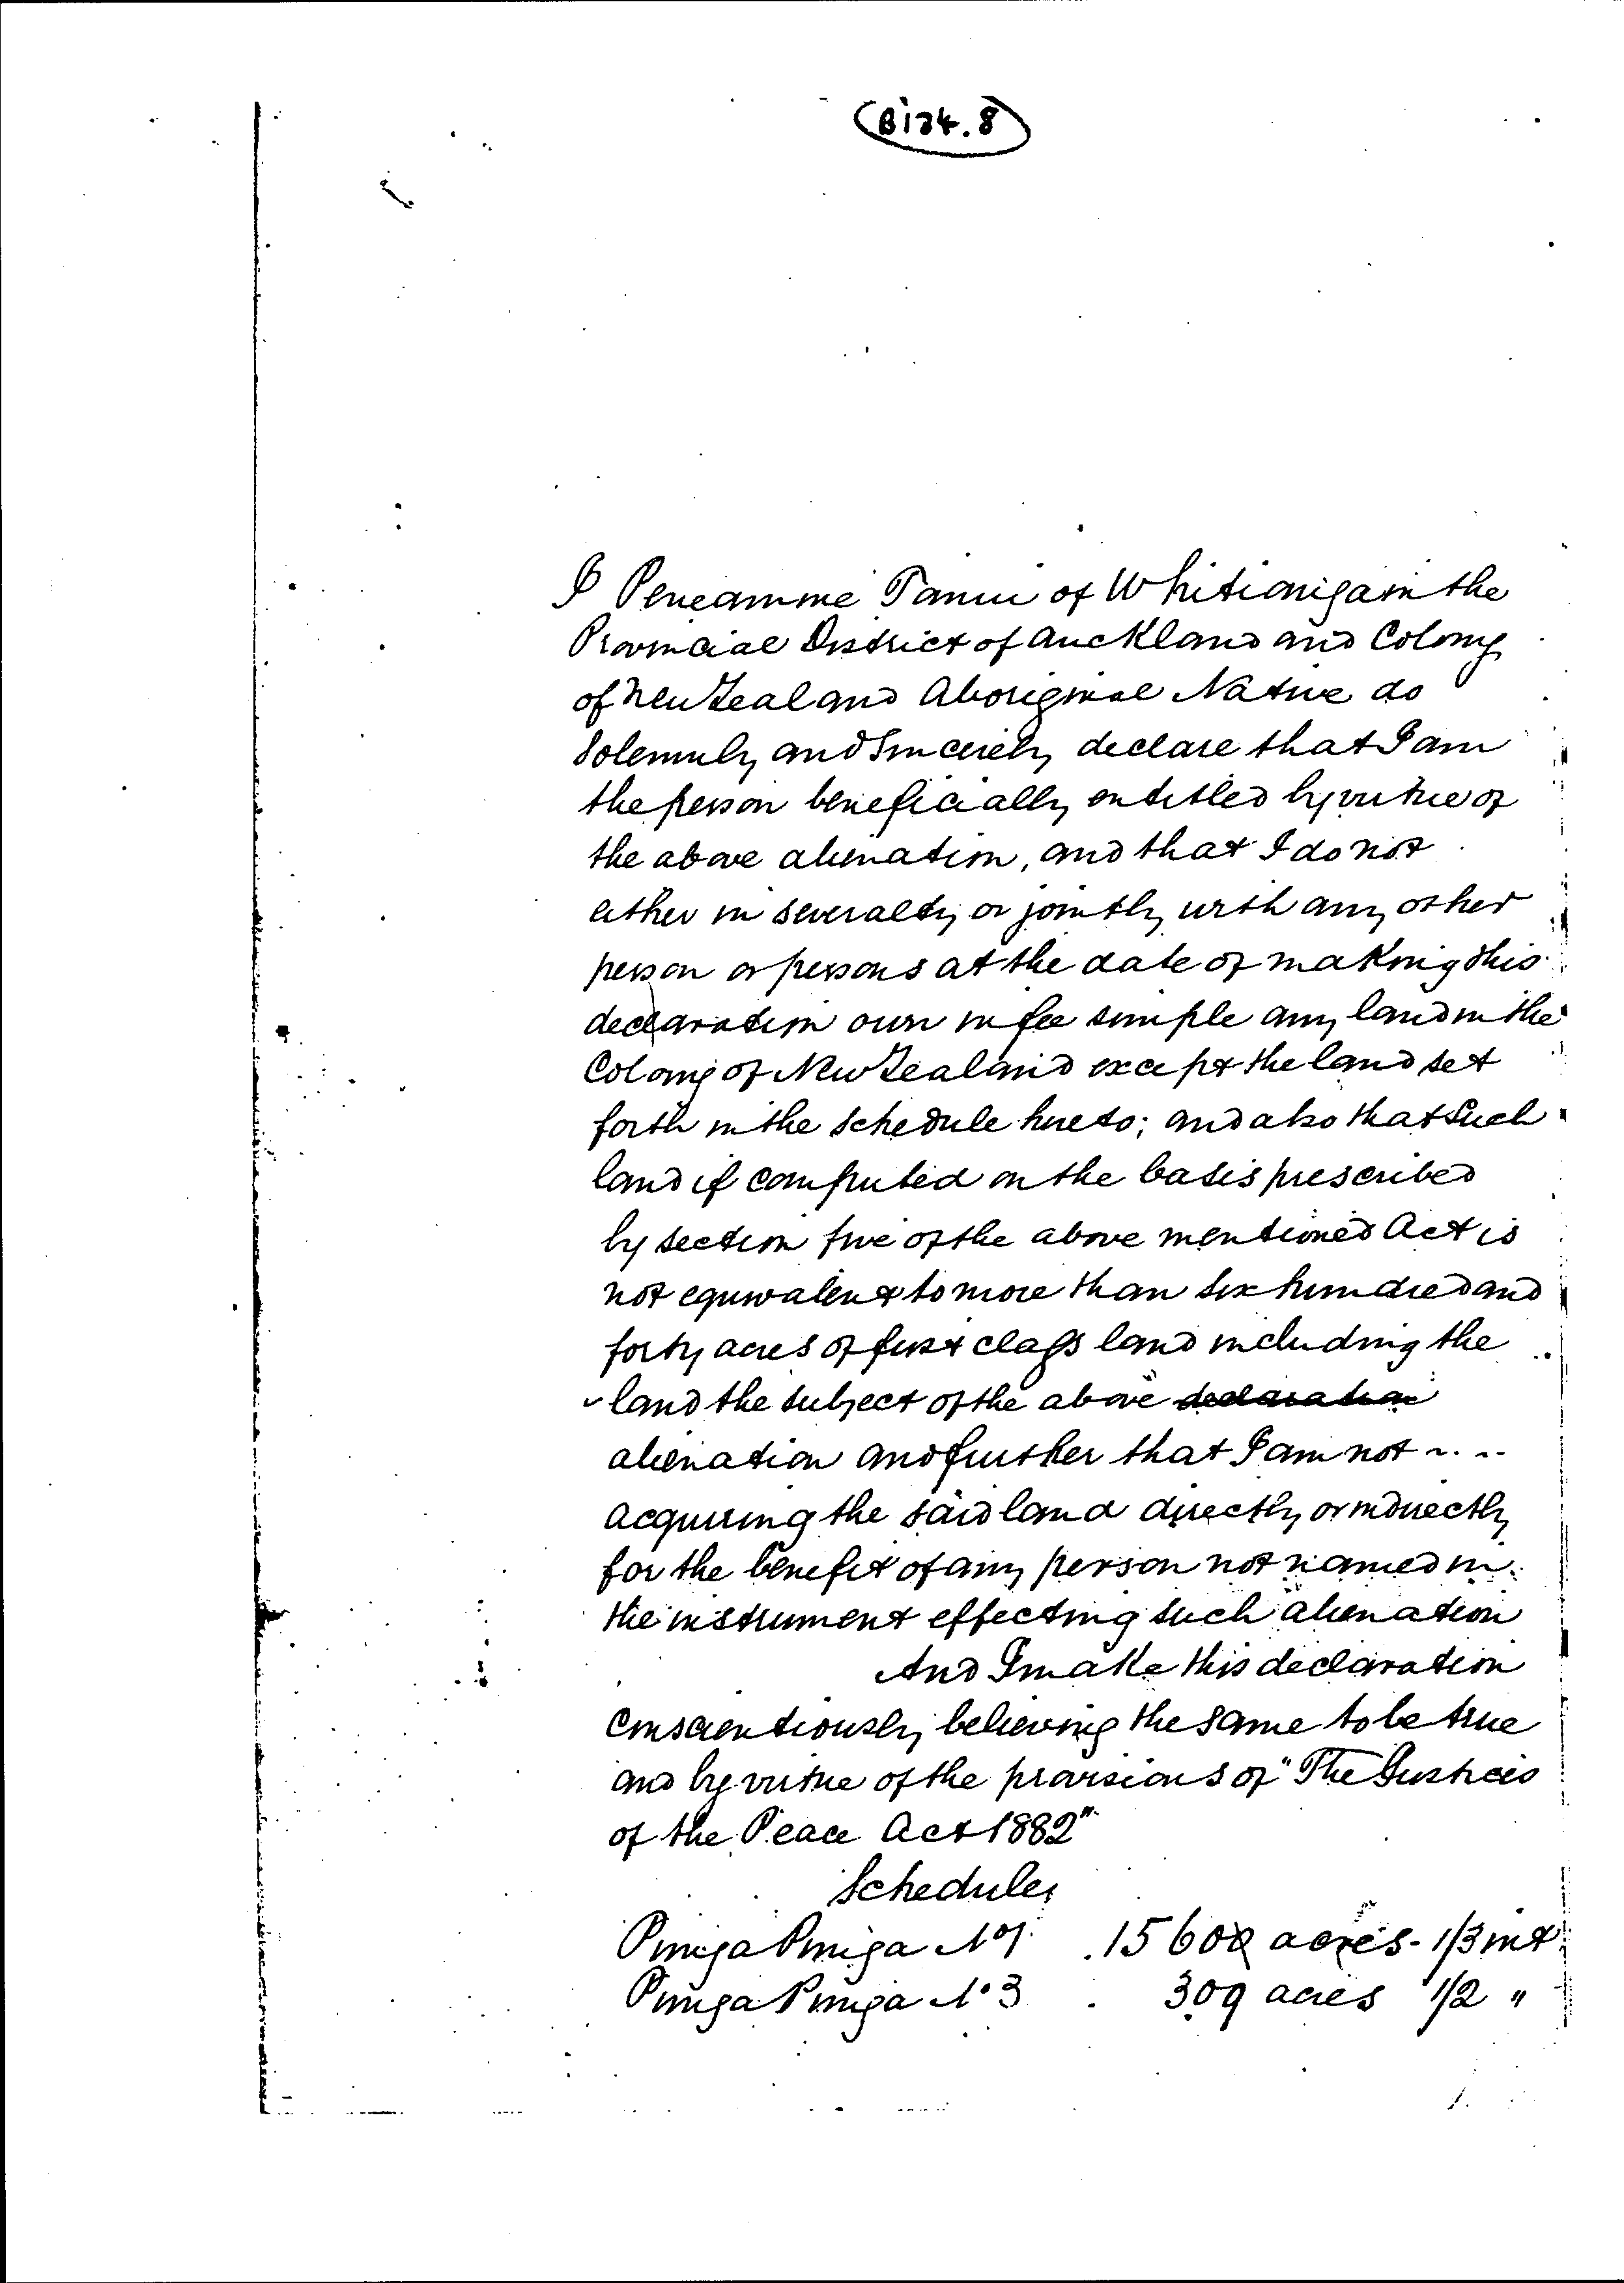 B134.8
I Peneamine Tanui of Whitianga in the
Provincial District of Auckland and Colony
of New Zealand Aboriginal Native do
Solemnly and Sincerely declare that I am
the person beneficially entitled by virtue of
the above alienation, and that I do not
either in severalty or jointly with any other
person or persons at the date of making this
declaration own in fee simple any land in the
Colony of New Zealand except the land set
forth in the schedule hereto; and also that such
land if computed on the basis prescribed
by section five of the above mentioned Act is
not equivalent to more than six hundred and
forty acres of first class land including the
land the subject of the above declaration
alienation and further that I am not
acquiring the said land directly or indirectly
for the benefit of any person not named in
the instrument effecting such alienation
And I make this declaration
conscientiously believing the same to be true
and by virtue of the provisions of "The Justices
of the Peace Act 1882"
Schedule
Punga Punga No 1 15600 acres - 1/3 int
Punga Punga No 3 309 acres 1/2 "